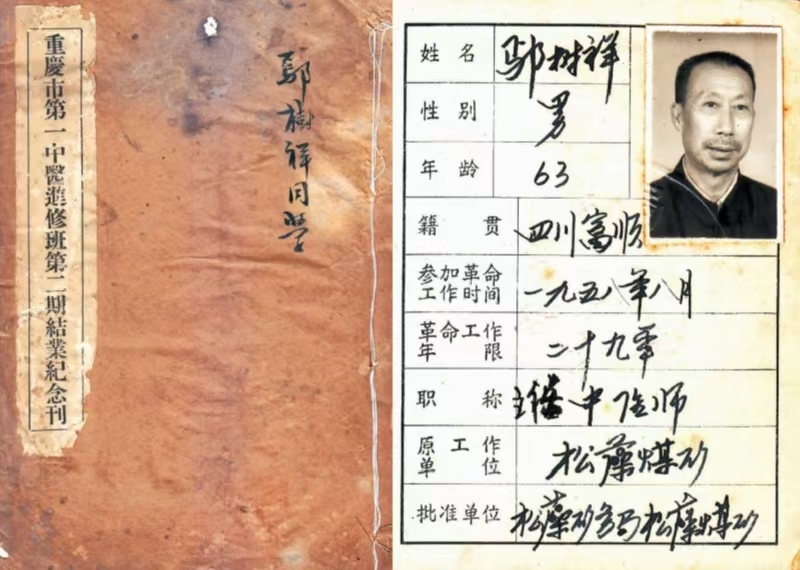 重慶市第一中醫進修班第二期結業紀念刊
鄔樹祥同學
姓名 邬树祥
性别 男
年龄 63
籍贯 四川富顺
参加革命工作时间 一九五八年八月
革命工作年限 二十九年
职称 中医师
原工作单位 松藻煤矿
批准单位 松藻矿务局松藻煤矿